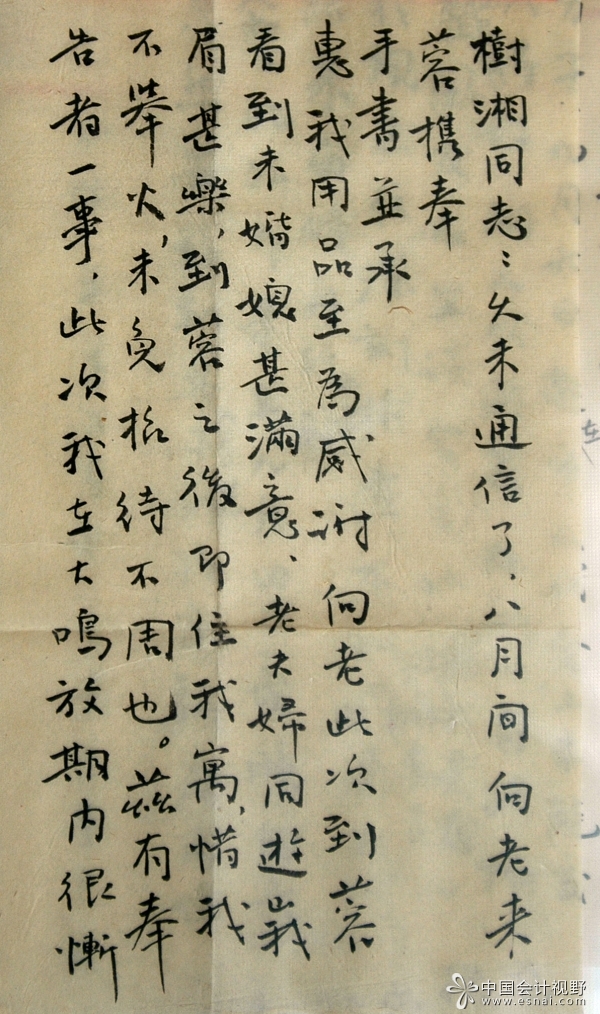 樹湘同志：久未通信了，八月间向老来
蓉携奉
手書並承
惠我用品至為感谢 向老此次到蓉
看到未婚媳甚滿意、老夫婦同遊峩
眉甚樂，到蓉之後即住我寓，惜我
不舉火，未免招待不周也。茲有奉
告者一事，此次我在大鳴放期内很慚
中国会计视野
www.esnai.com